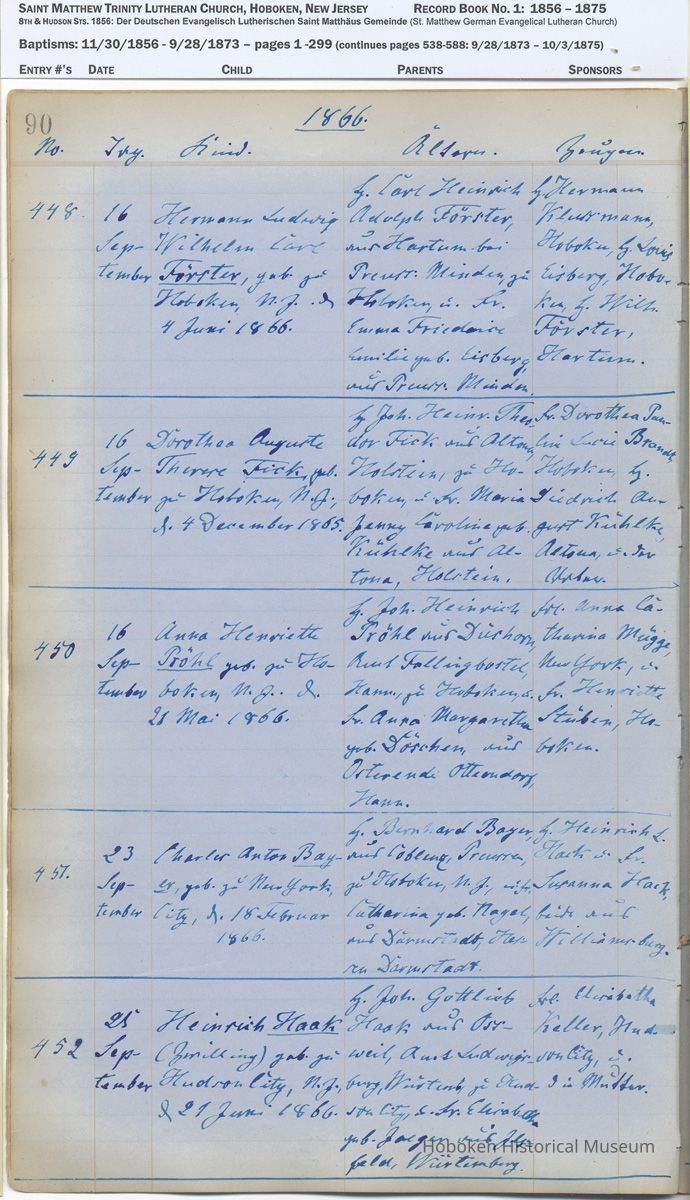 SAINT MATTHEW TRINITY LUTHERAN CHURCH, HOBOKEN, NEW JERSEY RECORD BOOK NO. 1: 1856 – 1875
8TH & HUDSON STS. 1856: Der Deutschen Evangelisch Lutherischen Saint Matthäus Gemeinde (St. Matthew German Evangelical Lutheran Church)
Baptisms: 11/30/1856 - 9/28/1873 – pages 1 -299 (continues pages 538-588: 9/28/1873 – 10/3/1875)
ENTRY #'S DATE CHILD PARENTS SPONSORS
90
1866.
No. Tag. Kind. Ältern. Zeugen.
448.
16
Sep-
tember
Hermann Ludwig
Wilhelm Carl
Förster, geb. zu
Hoboken, N. J. d.
4 Juni 1866.
H. Carl Heinrich
Adolph Förster,
aus Hartum bei
Preuss. Minden, zu
Hoboken, u. Fr.
Emma Friederice
Emilie geb. Eisberg,
aus Preuss. Minden.
H. Hermann
Hoboken, H. Louis
Eisberg, Hobo-
ken, H. Wilh.
Förster,
Hartum.
449
16
Sep-
tember
Dorothea Auguste
Therese Fick, geb.
zu Hoboken, N. J.,
d. 4 December 1865.
H. Joh. Heinr. Theo-
dor Fick aus Altona,
Holstein, zu Ho-
boken, u. Fr. Maria
Jenny Carolina geb.
Kühlke aus Al-
tona, Holstein.
Fr. Dorothea Pau-
line Lucie Brandt,
Hoboken, H.
Diedrich Au-
gust Kühlke,
Altona, u. der
Vater.
450
16
Sep-
tember
Anna Henriette
Pröhl geb. zu Ho-
boken, N. J. d.
21 Mai 1866.
H. Joh. Heinrich
Pröhl aus Düshorn,
Amt Fallingbostel,
Hann., zu Hoboken, u.
Fr. Anna Margaretha
geb. Döschen, aus
Osterende Otterndorf,
Hann.
Frl. Anna Ca-
tharina Mügge,
New York, u.
Fr. Henriette
Stüben, Ho-
boken.
451.
23
Sep-
tember
Charles Anton Bay-
er, geb. zu New York,
City, d. 18 Februar
1866.
H. Bernhard Bayer,
aus Coblenz, Preussen,
zu Hoboken, N. J., u. Fr.
Catharina geb. Nagel,
aus Darmstadt, Hes-
sen Darmstadt.
H. Heinrich L.
Hack u. Fr.
Susanna Hack,
beide aus
Williamsburg.
452
25
Sep-
tember
Heinrich Haak
(Zwilling) geb. zu
Hudson City, N. J.,
d. 21 Juni 1866.
H. Joh. Gottlieb
Haak aus Oss-
weil, Amt Ludwigs-
burg, Würtemb., zu Hud-
son City, u. Fr. Elisabeth
geb. Jaeger aus
feld, Würtemberg.
Frl. Elisabetha
Keller, Hud-
son City, u.
die Mutter.
Hoboken Historical Museum